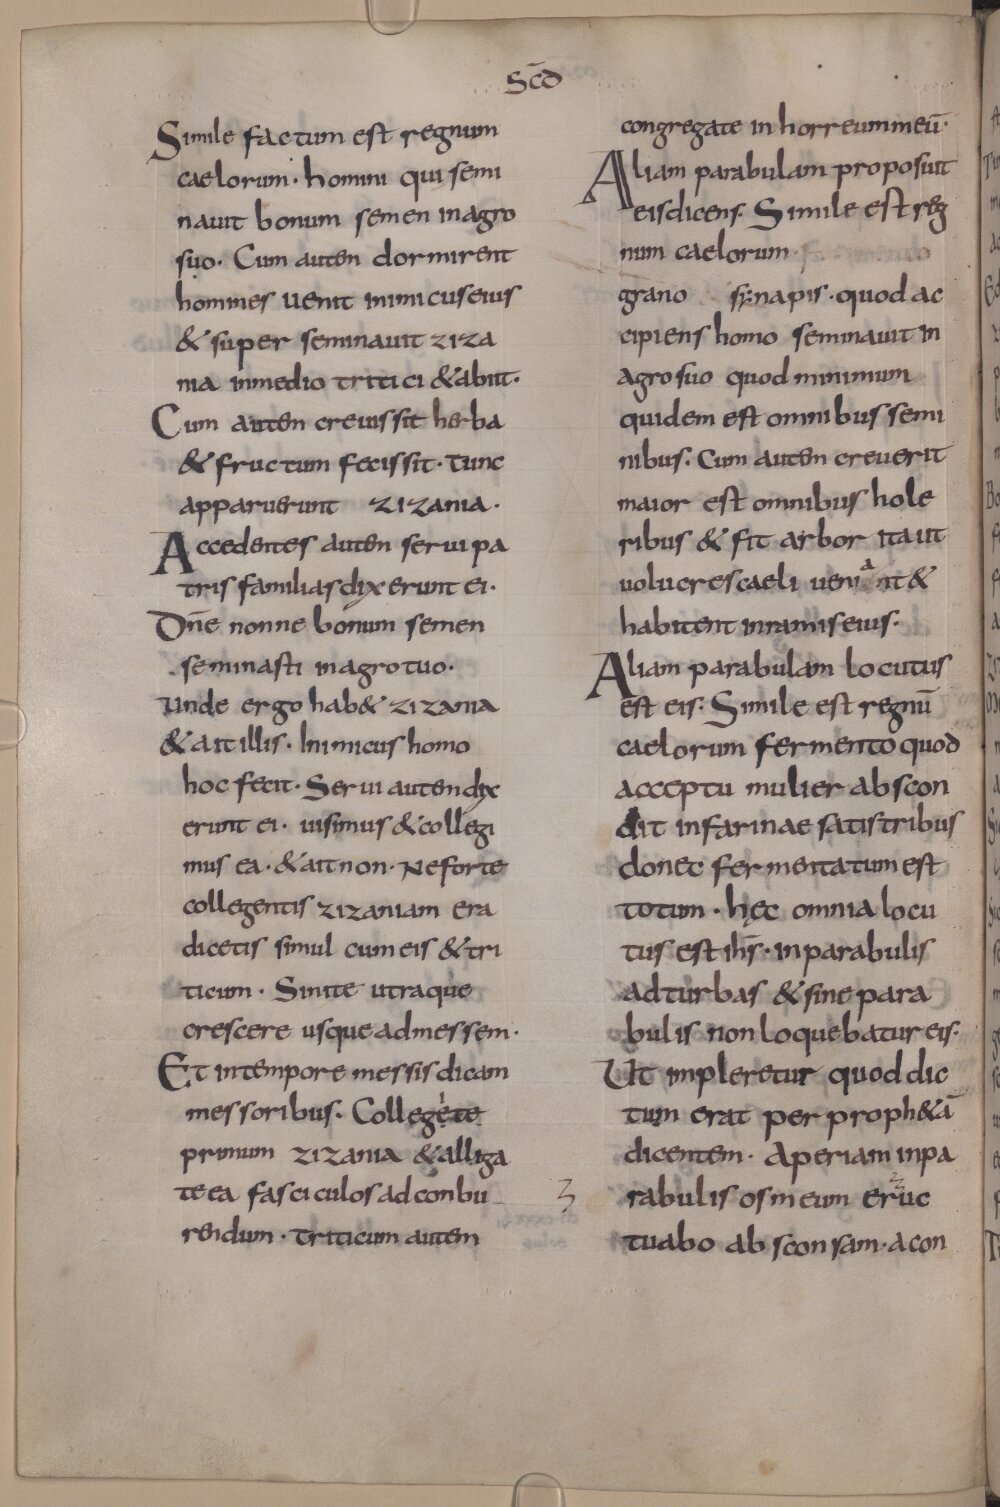 Sc̄d
Simile factum est regnum
caelorum · homini qui semi
nauit bonum semen inagro
suo · Cum autem dormirent
homines uenit inimicuseius
& super seminauit ziza
nia inmedio tritici &abiit ·
Cum autem creuissit herba
& fructum fecissit · tunc
apparuerunt zizania ·
Accedentes autem serui pa
tris familias dixerunt ei ·
Dn̄e nonne bonum semen
seminasti inagro tuo ·
Unde ergo hab& zizania
& ait illis · Inimicus homo
hoc fecit · Serui autem dix
erunt ei · uisimus &collegi
mus ea · &ait non · Neforte
collegentis zizaniam era
dicetis simul cum eis &tri
ticum · Sinite utraque
crescere usque admessem ·
Et intempore messis dicam
messoribus · Collegete
primum zizania &alliga
te ea fasciculos ad conbu
rendum · Triticum autem
congregate in horreum meū ·
Aliam parabulam proposuit
eis dicens · Simile est reg
num caelorum
grano synapis · quod ac
cipiens homo seminauit in
agro suo quod minimum
quidem est omnibus semi
nibus · Cum autem creuerit
maior est omnibus hole
ribus & fit arbor ita ut
uolucres caeli ueniant &
habitent inramis eius ·
Aliam parabulam locutus
est eis · Simile est regnū
caelorum fermento quod
acceptu mulier abscon
dit infarinae satis tribus
donec fermentatum est
totum · hęc omnia locu
tus est ih̄s · inparabulis
adturbas & sine para
bulis non loquebatur eis ·
Ut impleretur quod dic
tum erat per proph&ā
dicentem · Aperiam inpa
rabulis os meum eruc
tuabo absconsam · a con